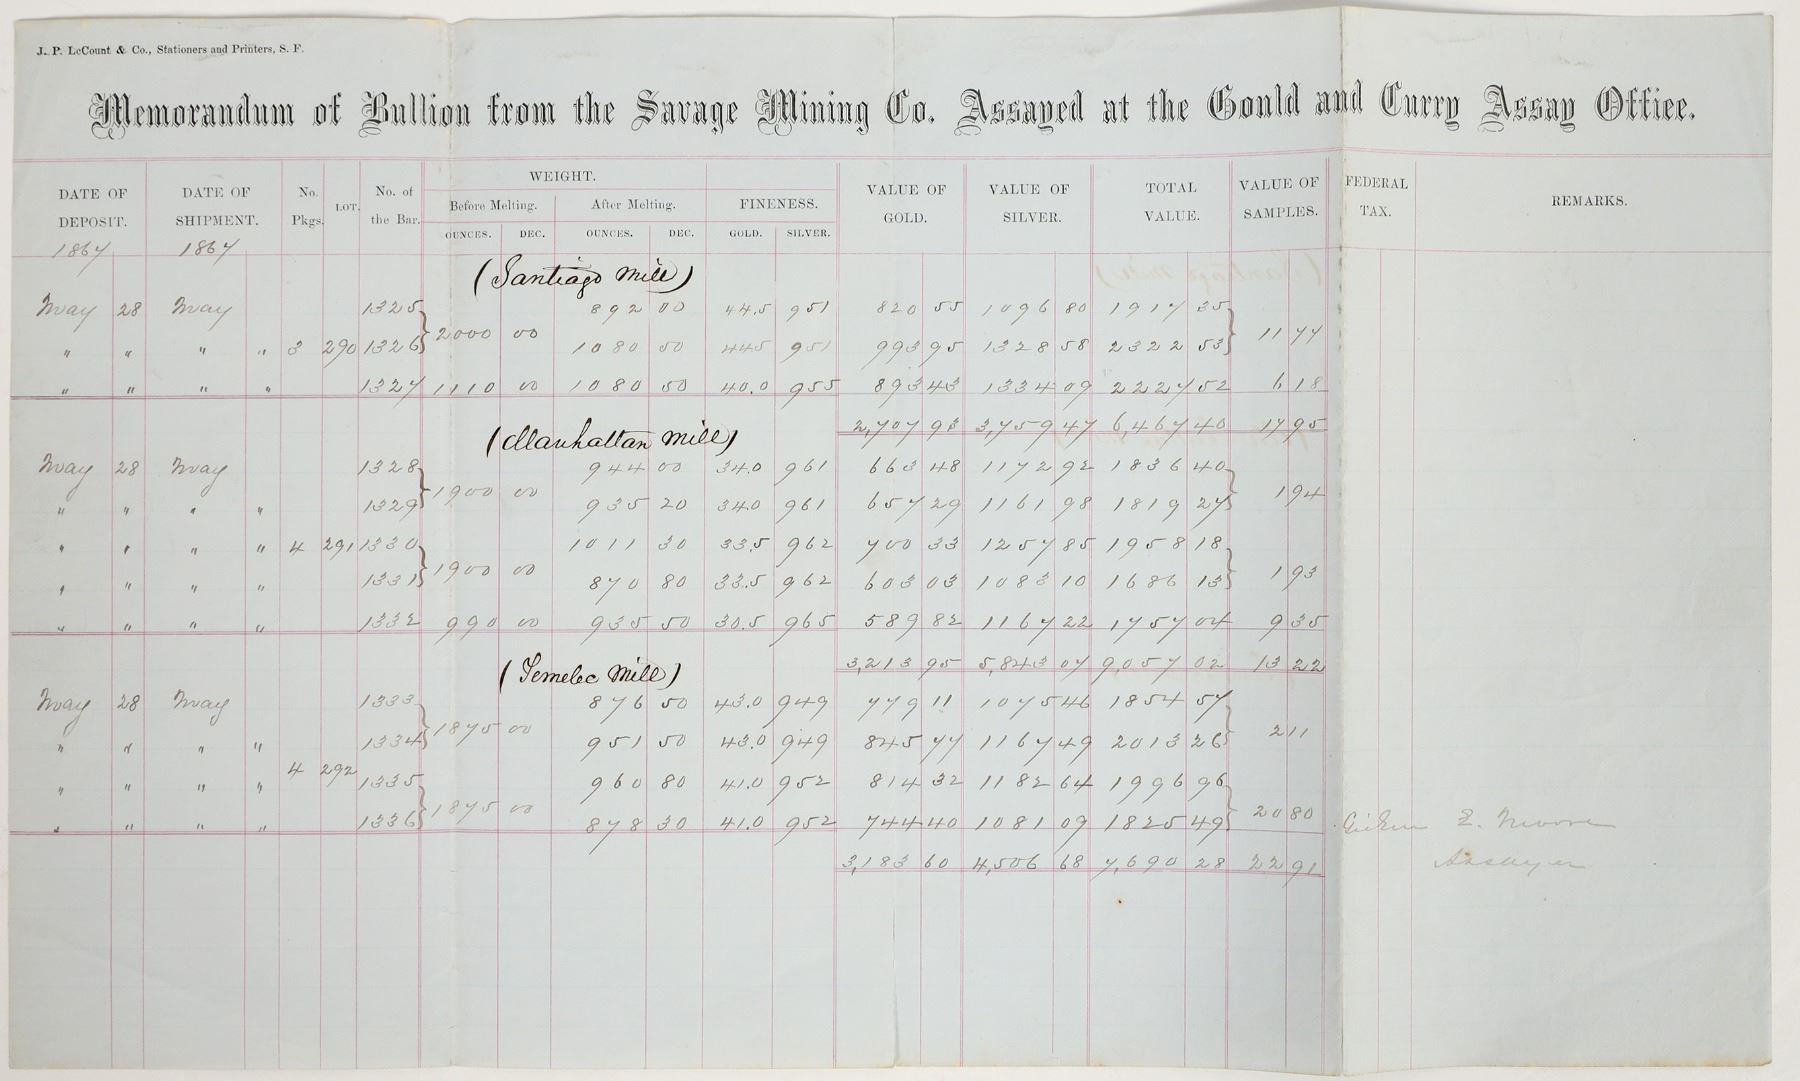 J. P. LeCount & Co., Stationers and Printers, S. F.
Memorandum of Bullion from the Savage Mining Co. Assayed at the Gould and Curry Assay Office.
DATE OF DEPOSIT. DATE OF SHIPMENT. No. Pkgs. LOT. No. of the Bar. WEIGHT. Before Melting. OUNCES. DEC. After Melting. OUNCES. DEC. FINENESS. GOLD. SILVER. VALUE OF GOLD. VALUE OF SILVER. TOTAL VALUE. VALUE OF SAMPLES. FEDERAL TAX. REMARKS.
1867 1867
(Santiago Mill)
May 28 May 1325 892 00 44.5 951 820 55 1096 80 1917 35
" " " " 3 290 1326 2000 00 1080 50 445 951 993 95 1328 58 2322 53 11 77
" " " " 1327 1110 00 1080 50 40.0 955 893 43 1334 09 2227 52 6 18
2,707 93 3,759 47 6,467 40 17 95
(Manhattan Mill)
May 28 May 1328 944 00 34.0 961 663 48 1172 92 1836 40
" " " " 1329 1900 00 935 20 34.0 961 657 29 1161 98 1819 27 1 94
" " " " 4 291 1330 1011 30 33.5 962 700 33 1257 85 1958 18
" " " " 1331 1900 00 870 80 33.5 962 603 03 1083 10 1686 13 1 93
" " " " 1332 990 00 935 50 30.5 965 589 82 1167 22 1757 04 9 35
3,213 95 5,843 07 9,057 02 13 22
(Temelec Mill)
May 28 May 1333 876 50 43.0 949 779 11 1075 46 1854 57
" " " " 1334 1875 00 951 50 43.0 949 845 77 1167 49 2013 26 2 11
" " " " 4 292 1335 960 80 41.0 952 814 32 1182 64 1996 96
" " " " 1336 1875 00 878 30 41.0 952 744 40 1081 09 1825 49 20 80
Moore
3,183 60 4,506 68 7,690 28 22 91 Assayer